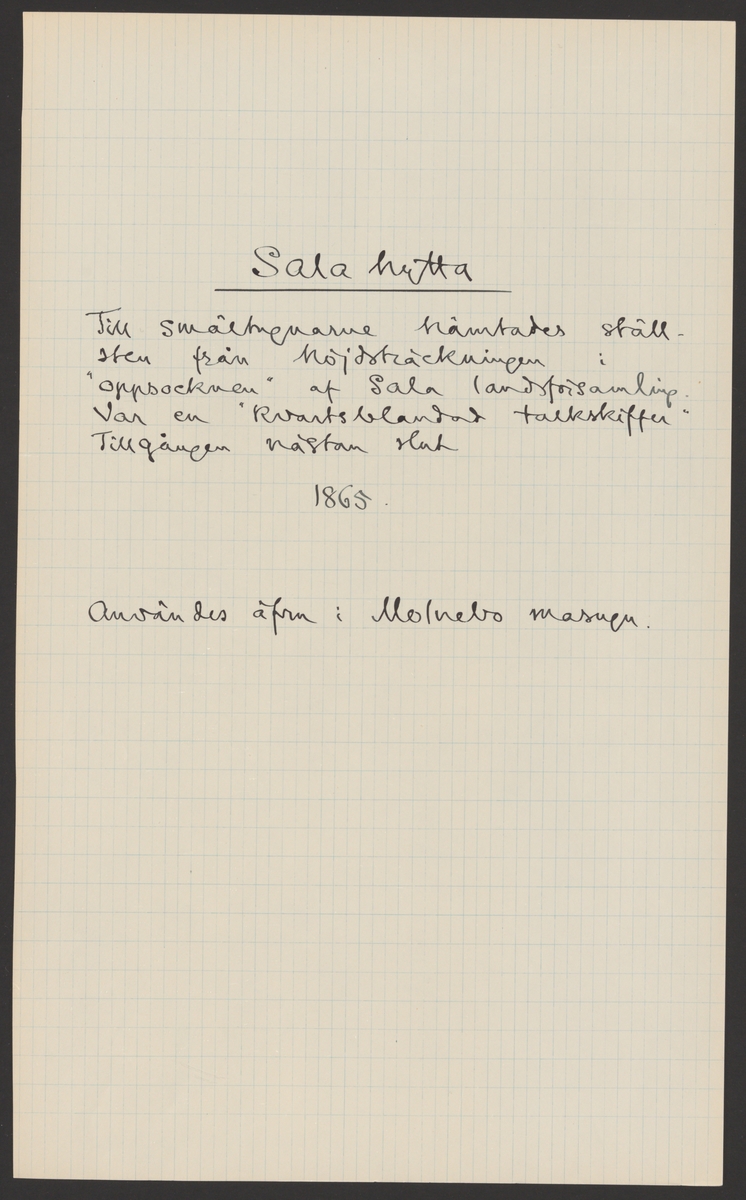 Sala hytta
Till smältugnarne hämtades ställ-
sten från höjdsträckningen i
"oppsocknen" af Sala landsförsamling.
Var en "kvartsblandad talkskiffer"
Tillgången nästan slut
1865.
Användes äfven i Molnebo masugn.